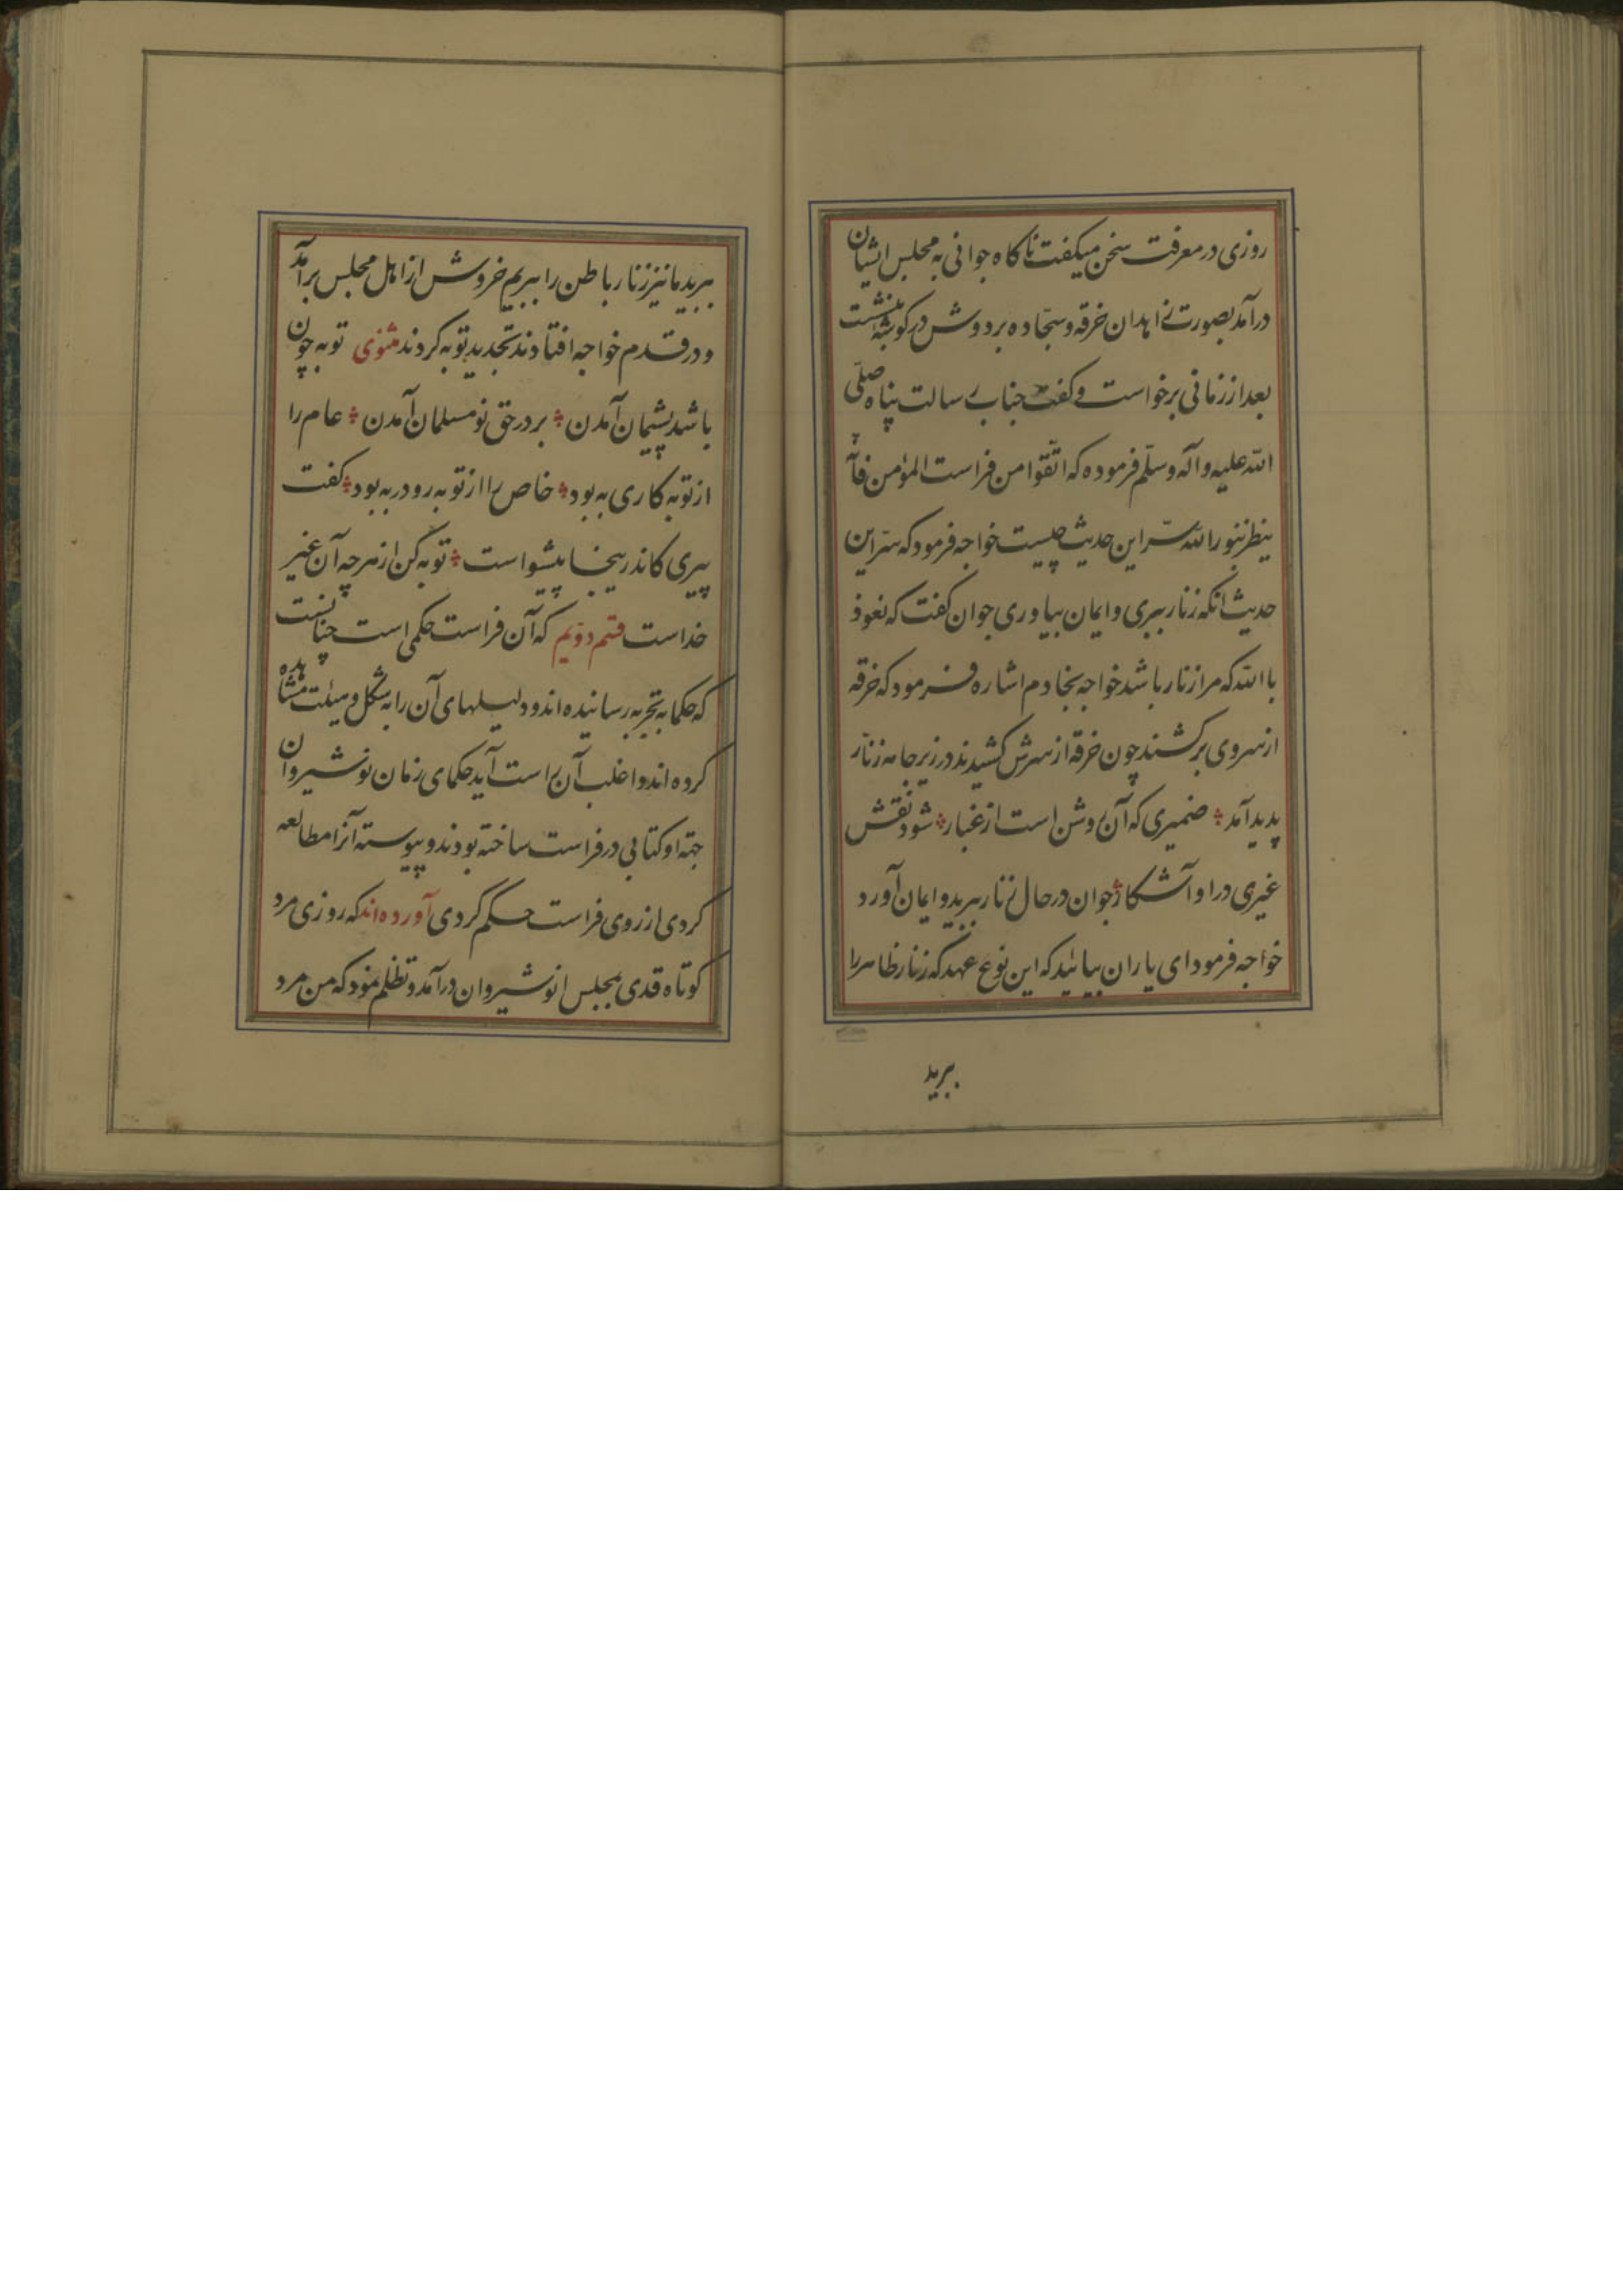 روزی در معرفت سخن میکفت ناکاه جوانی به مجلس ایشان
درآمد بصورت زاهدان خرقه و سجّاده بر دوش در کوشه بنشست
بعد از زمانی برخواست و کفت جناب رسالت پناه صلّی
الله علیه و آله و سلّم فرموده که اتّقوا من فراست المؤمن فانّه
ینظر بنور الله سرّ این حدیث چیست خواجه فرمود که سرّ این
حدیث انکه زنار ببری و ایمان بیاوری جوان کفت که نعوذ
باالله که مرا زنار باشد خواجه بخادم اشاره فرمود که خرقه
از سر وی برکشند چون خرقه از سرش کشیدند در زیر جامه زنّار
پدید آمد ضمیری که آن روشن است از غبار شود نقش
غیری در او آشکار جوان در حال زنار ببرید و ایمان آورد
خواجه فرمود ای یاران بیائید که این نوع عهد که زنار ظاهر را
ببرید
ببرید ما نیز زنار باطن را ببریم خروش از اهل مجلس برآمد
و در قدم خواجه افتادند تجدید توبه کردند مثنوی توبه چون
باشد پشیمان آمدن بر در حق نو مسلمان آمدن عام را
از توبه کاری به بود خاص را از توبه رو در به بود کفت
پیری کاندر ینجا پیشواست توبه کن از هر چه آن غیر
خداست قسم دویم که آن فراست حکمی است چنانست
که حکما به تجربه رسانیده اند و دلیلهای آن را به شکل و هیئت مشاهده
کرده اند و اغلب آن راست آید حکمای زمان نوشیروان
جهته او کتابی در فراست ساخته بودند و پیوسته آنرا مطالعه
کردی از روی فراست حکم کردی آورده اند که روزی مرد
کوتاه قدی بمجلس انوشیروان درآمد و تظلم نمود که من مرد